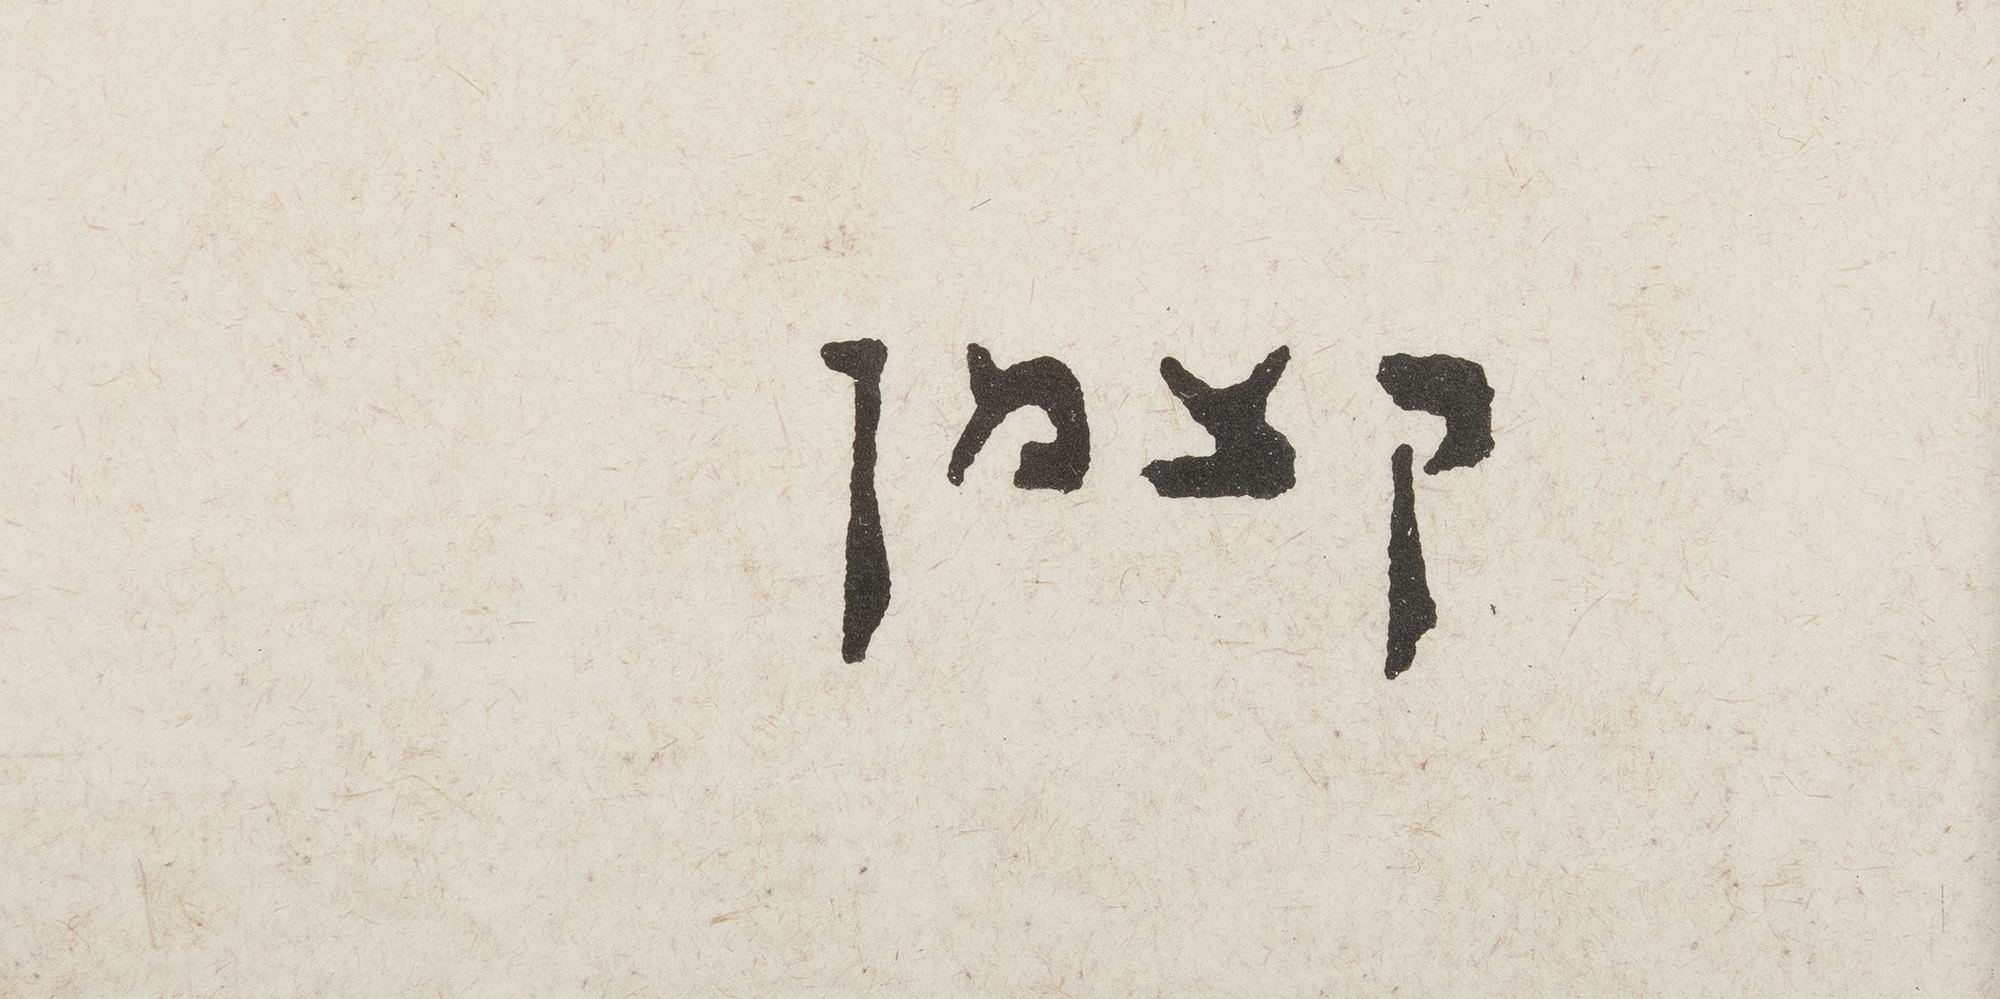 קצמן